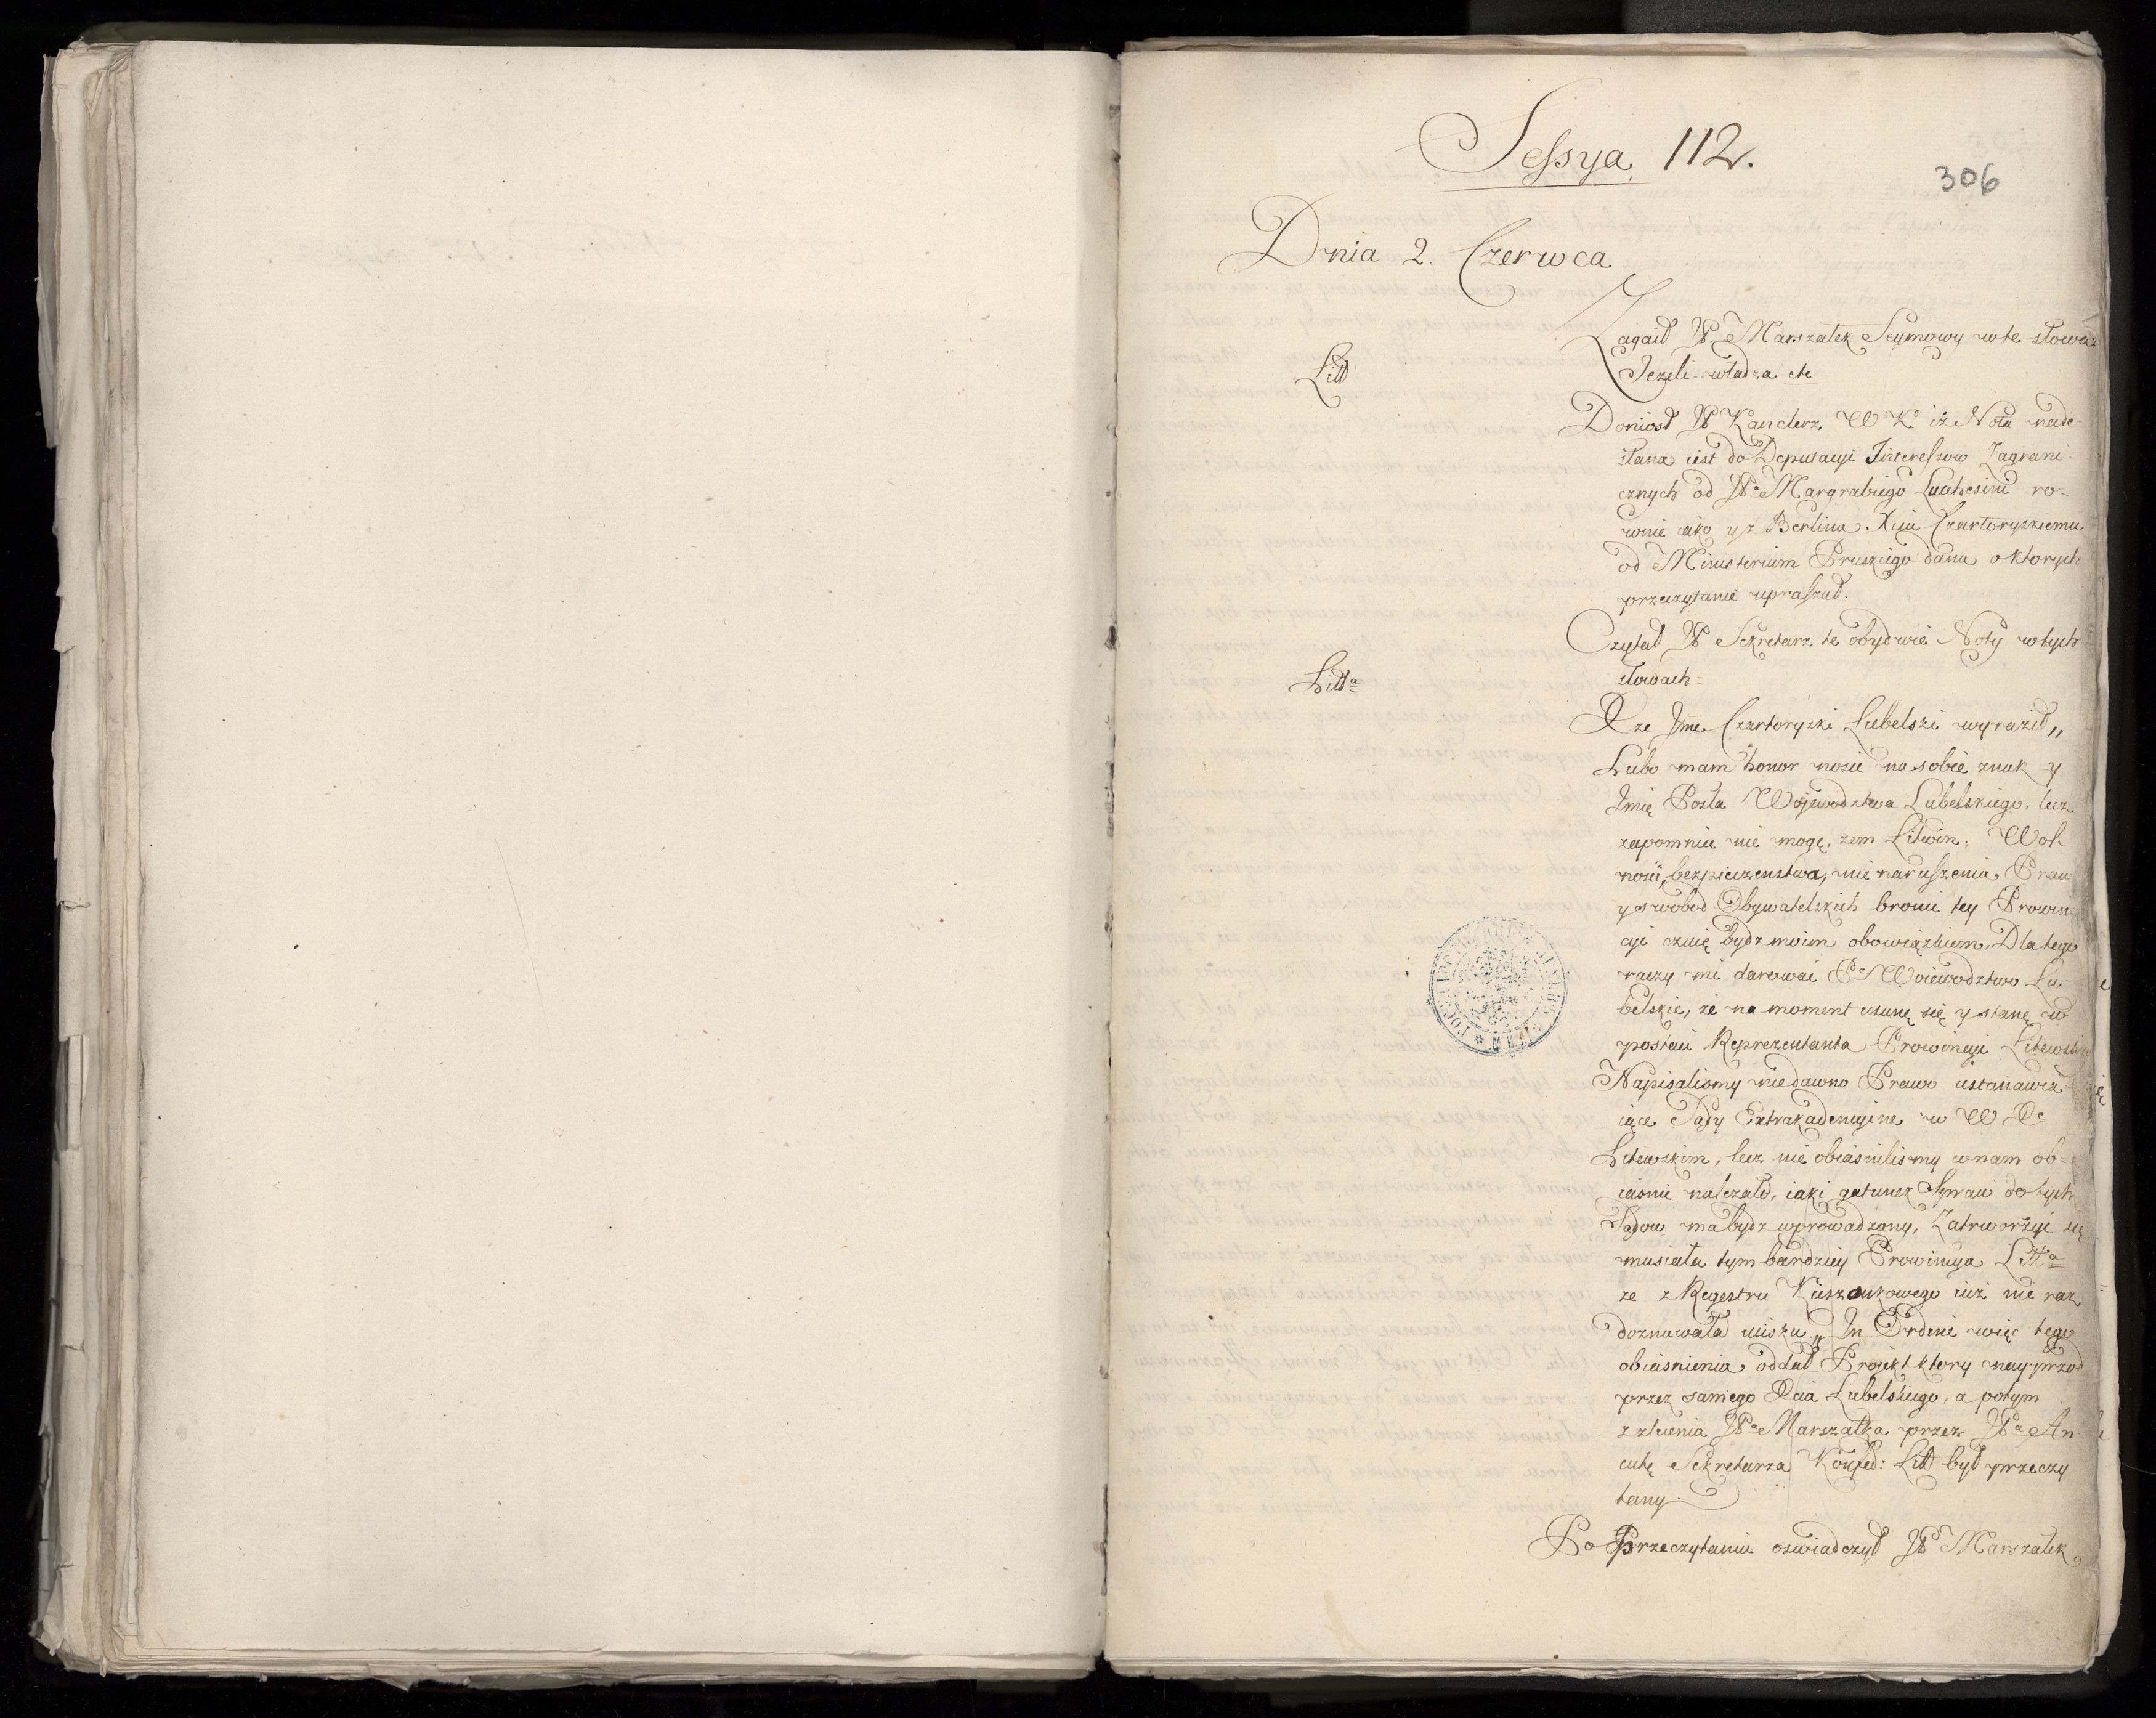 Sessya 112.
306
Dnia 2. Czerwca
Zagaił JP Marszałek Seymowy w te słowa
Litt
Jeżeli władza etc
Doniosł JP Kanclerz W K. iż Nota nade-
słana iest do Deputacyi Interessow Zagrani-
cznych od JPa Margrabiego Luchesini ro-
wnie iako y z Berlina Xciu Czartoryskiemu
od Ministerium Pruskiego dana o ktorych
przeczytanie upraszał.
Czytał JP Sekretarz te obydwie Noty w tych
Litta
słowach=
Xże Jmc Czartoryski Lubelski wyraził„
Lubo mam honor nosić na sobie znak y
Jmię Posła Wojewodztwa Lubelskiego, lecz
zapomnieć nie mogę, żem Litwin, Wol-
ności, bezpieczenstwa, nie naruszenia Praw
y swobod Obywatelskich bronić tey Prowin
cyi czuię bydz moim obowiązkiem. Dla tego
raczy mi darować Pe Woiewodztwo Lu
belskie, że na moment usunę się y stanę w
postaci Reprezentanta Prowincyi Litewskiey
Napisalismy niedawno Prawo ustanawia
iące Sądy Extrakadencyine w W X
Litewskim, lecz nie obiasnilismy co nam ob-
iasnić należało, iaki gatunek Spraw do tych
Sądow ma bydz wprowadzony, Zatrworzyć się
musiała tym bardziey Prowincya Litta
że z Regestru Kieszonkowego iuż nie raz
doznawała ucisku„ In Ordine więc tego
obiasnienia oddał Proiekt ktory nayprzod
przez samego Xcia Lubelskiego, a potym
z zlecenia JPa Marszałka przez JPa An
cutę Sekretarza Konfed: Litt był przeczy
tany
Po Przeczytaniu oswiadczył JP Marszałek